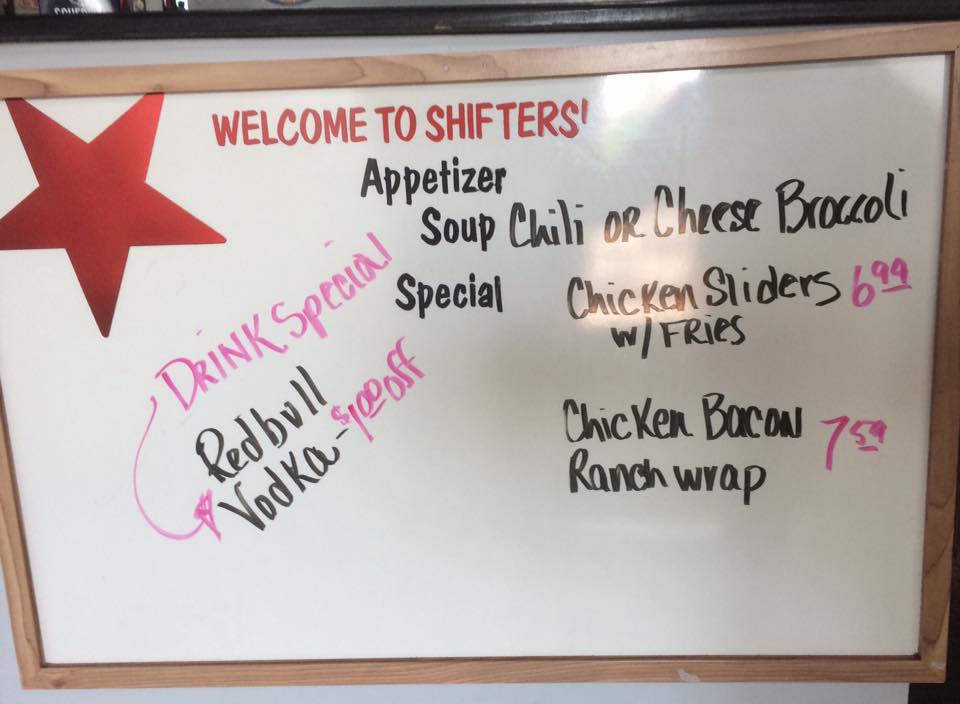 WELCOME TO SHIFTERS'
Appetizer
Soup Chili OR Cheese Broccoli
Special Chicken Sliders 6.99
w/ FRIES
Chicken Bacon 7.59
Ranch wrap
DRINK Special
Redbull
Vodka - $1.00 off